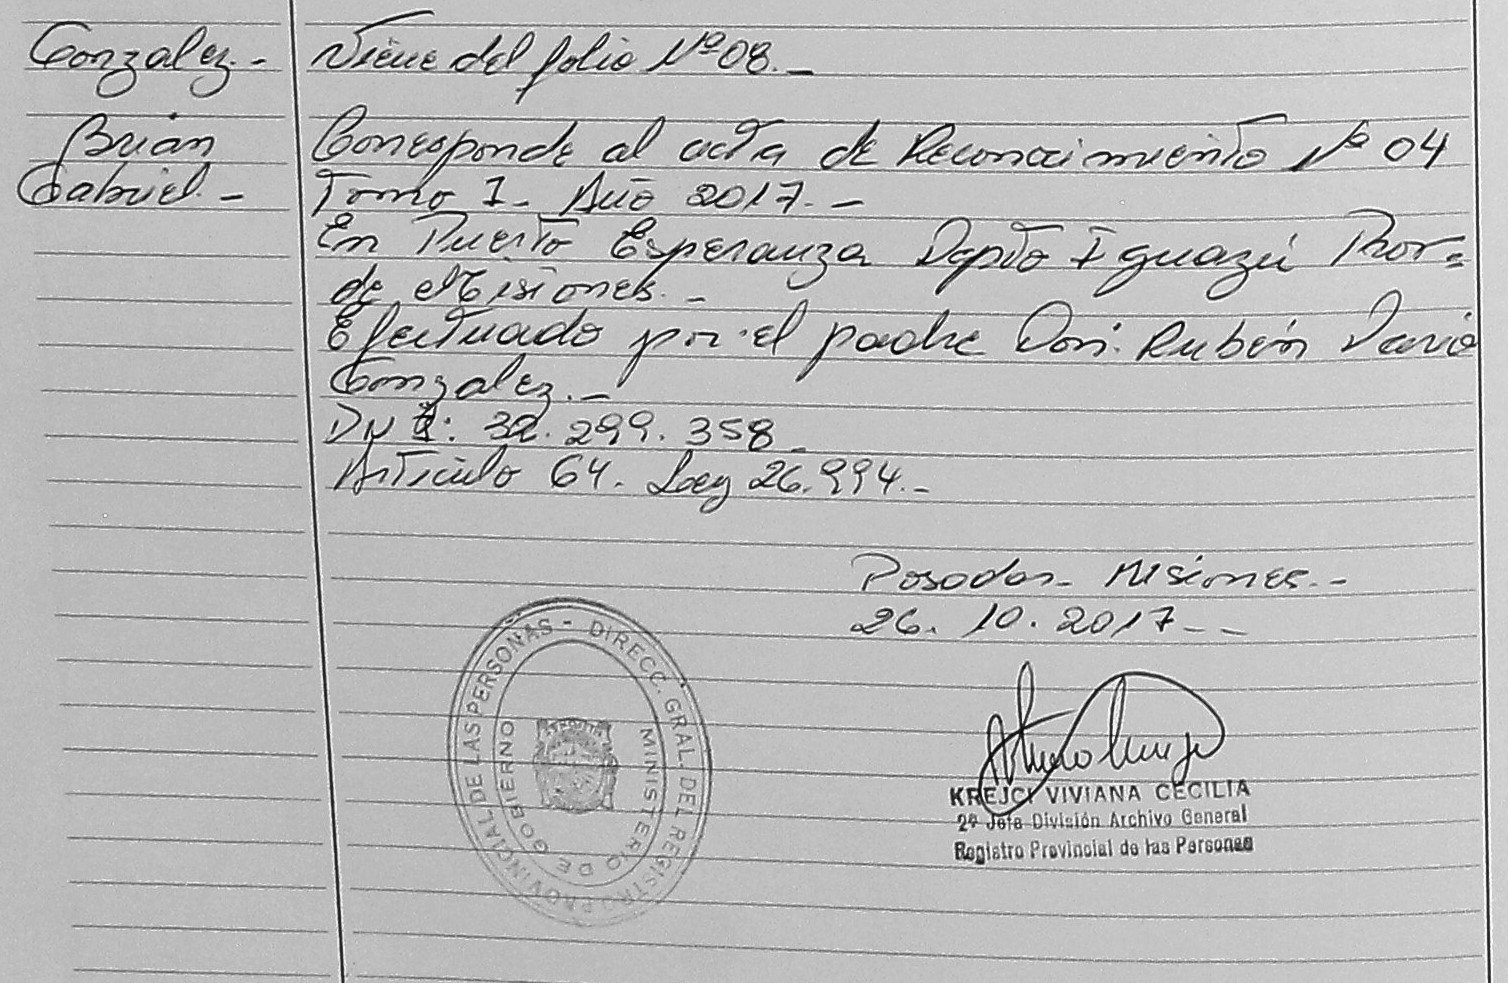 Gonzalez.-
Brian
Gabriel.-
Viene del folio Nº 08.-
Corresponde al acta de Reconocimiento Nº 04
Tomo I- Año 2017.-
En Puerto Esperanza Dpto Iguazú Prov-
de Misiones.-
Efectuado por el padre Don: Rubén David
Gonzalez.-
DNI: 32.299.358-
Artículo 64. Ley 26.994.-
Posadas- Misiones.-
26.10.2017--
DIRECC. GRAL. DEL REGISTRO PROVINCIAL DE LAS PERSONAS -
MINISTERIO DE GOBIERNO
KREJCI VIVIANA CECILIA
2º Jefe División Archivo General
Registro Provincial de las Personas